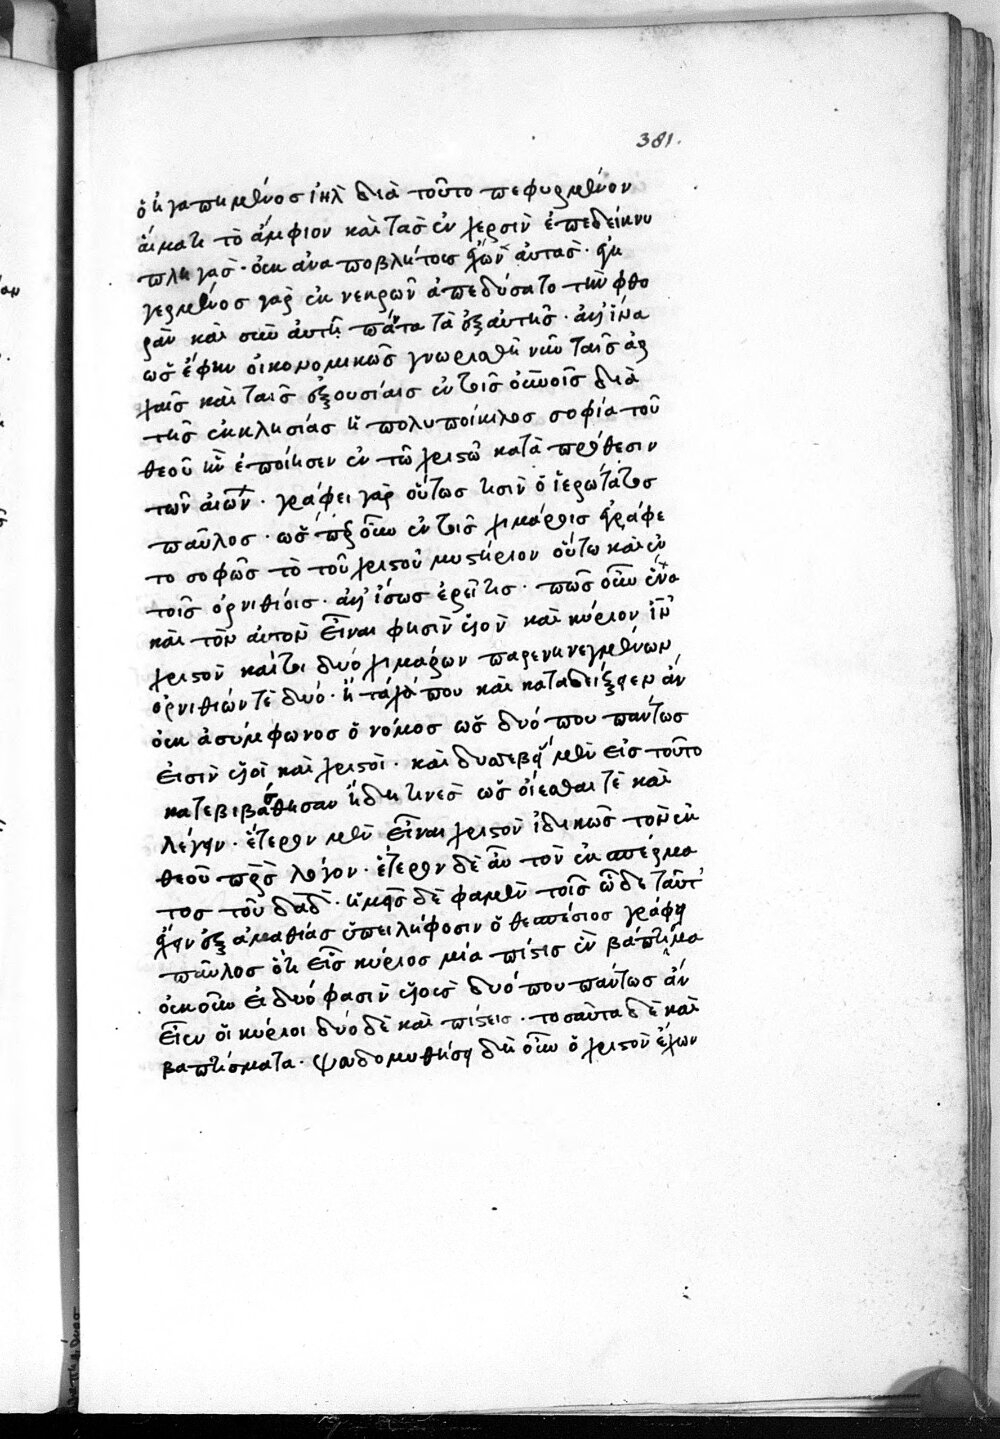 381.
ὁ ἠγαπημένος ἰηλ̀ διὰ τοῦτο πεφυρμένον
αἵματι τὸ ἀμφιον καὶ τὰς ἐν χερσὶν ἐπεδείκνυ
πληγὰς· οὐκ ἀναποβλήτους ἔχων αὐτὰς· ἐγη
γερμένος γὰρ ἐκ νεκρῶν ἀπεδύσατο τὴν φθο
ρὰν καὶ σὺν αὐτῇ πάντα τὰ ἐξ αὐτῆς· ἀλλ' ἵνα
ὡς ἔφην οἰκονομικῶς γνωρισθῇ νῦν ταῖς ἀρ
χαῖς καὶ ταῖς ἐξουσίαις ἐν τοῖς οὐνοῖς διὰ
τῆς ἐκκλησίας ἡ πολυποίκιλος σοφία τοῦ
θεοῦ ἣν ἐποίησεν ἐν τῶ χριστῶ κατὰ πρόθεσιν
τῶν αἰων· γράφει γὰρ οὕτως τισὶν ὁ ἱερώτατος
παῦλος· ὡς πρ οὖν ἐν τοῖς χιμάροις ἐγράφε
το σοφῶς τὸ τοῦ χριστοῦ μυστήριον οὕτω καὶ ἐν
τοῖς ὀρνιθίοις· ἀλλ' ἴσως ἐρεῖ τις· πῶς οὖν ἕνα
καὶ τὸν αὐτὸν εἶναι φησὶν υἱὸν καὶ κύριον ἰν
χριστὸν καίτοι δυό χιμάρων παρενηνεγμένων
ὀρνιθιών τὲ δυό· ἢ τάχά που καὶ καταδείξειεν ἀν
οὐκ ἀσύμφωνος ὁ νόμος ὡς δυό που πάντως
εἰσὶν υἱοὶ καὶ χριστοὶ· καὶ δυσσεβεῖ μὲν εἰς τοῦτο
κατεβιβάσθησαν ἤδη τινὲς ὡς οἴεσθαι τὲ καὶ
λέγειν· ἕτερον μὲν εἶναι χριστὸν ἰδικῶς τὸν ἐκ
θεοῦ πρς λόγον· ἕτερον δὲ αὖ τὸν ἐκ σπέρμα
τος τοῦ δαδ· ἡμεῖς δὲ φαμὲν τοῖς ὧδε ταῦτ'
ἔχειν ἐξ ἀμαθίας ὑπειλήφοσιν ὁ θεσπέσιος γράφει
παῦλος ὅτι εἷς κύριος μία πίστις ἓν βάπτισμα
οὐκοῦν εἰ δυό φασὶν υἱοὺς δυό που πάντως ἀν
εἶεν οἱ κύριοι δυό δὲ καὶ πίστεις· τοσαῦτα δὲ καὶ
βαπτίσματα· ψευδομυθήσει δὴ οὖν ὁ χριστὸν ἔχων